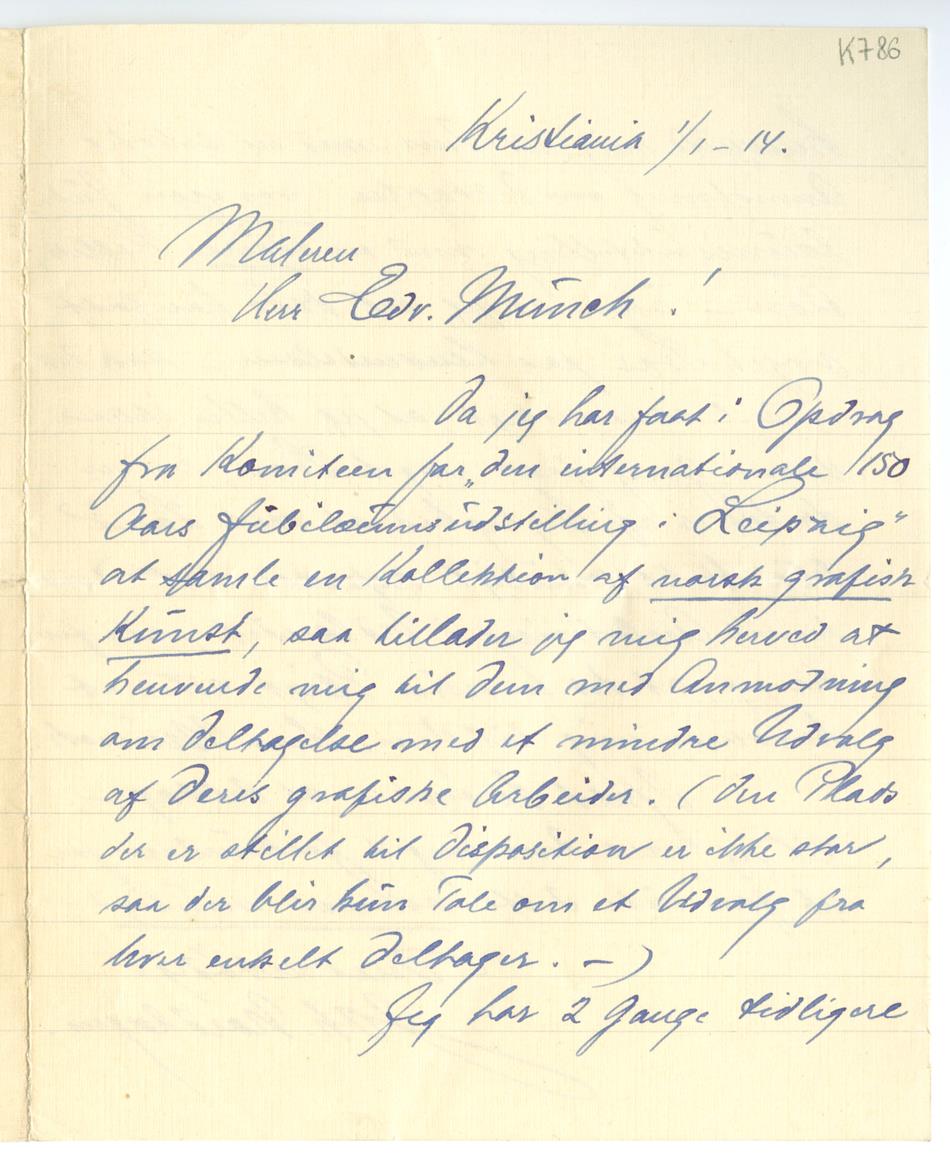 K786
Kristiania 1/1 – 14.
Maleren
Herr Edv. Münch!
Da jeg har faat i Opdrag
fra Komiteen for „den internationale 150
Aars Jübilæümsüdstilling i Leipzig“
at samle en Kollektion af norsk grafisk
Künst, saa tillader jeg mig herved at
henvende mig til Dem med Anmodning
om Deltagelse med et mindre Udvalg
af Deres grafiske Arbeider. (Den Plads
der er stillet til Disposition er ikke stor,
saa der blir kün Tale om et Udvalg fra
hver enkelt Deltager. –)
Jeg har 2 Gange tidligere